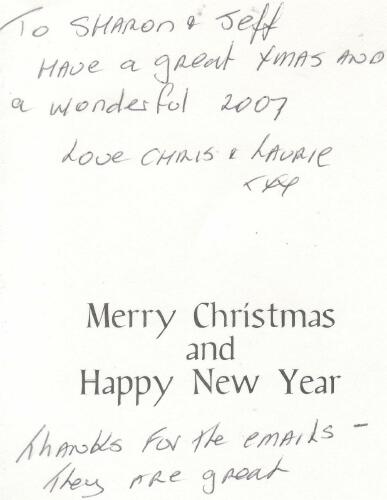 To SHARON & Jeff
HAVE a great XMAS AND
a wonderful 2007
LOVE CHRIS & LAURIE
xxx
Merry Christmas
and
Happy New Year
Thanks FOR the emails -
They ARE great